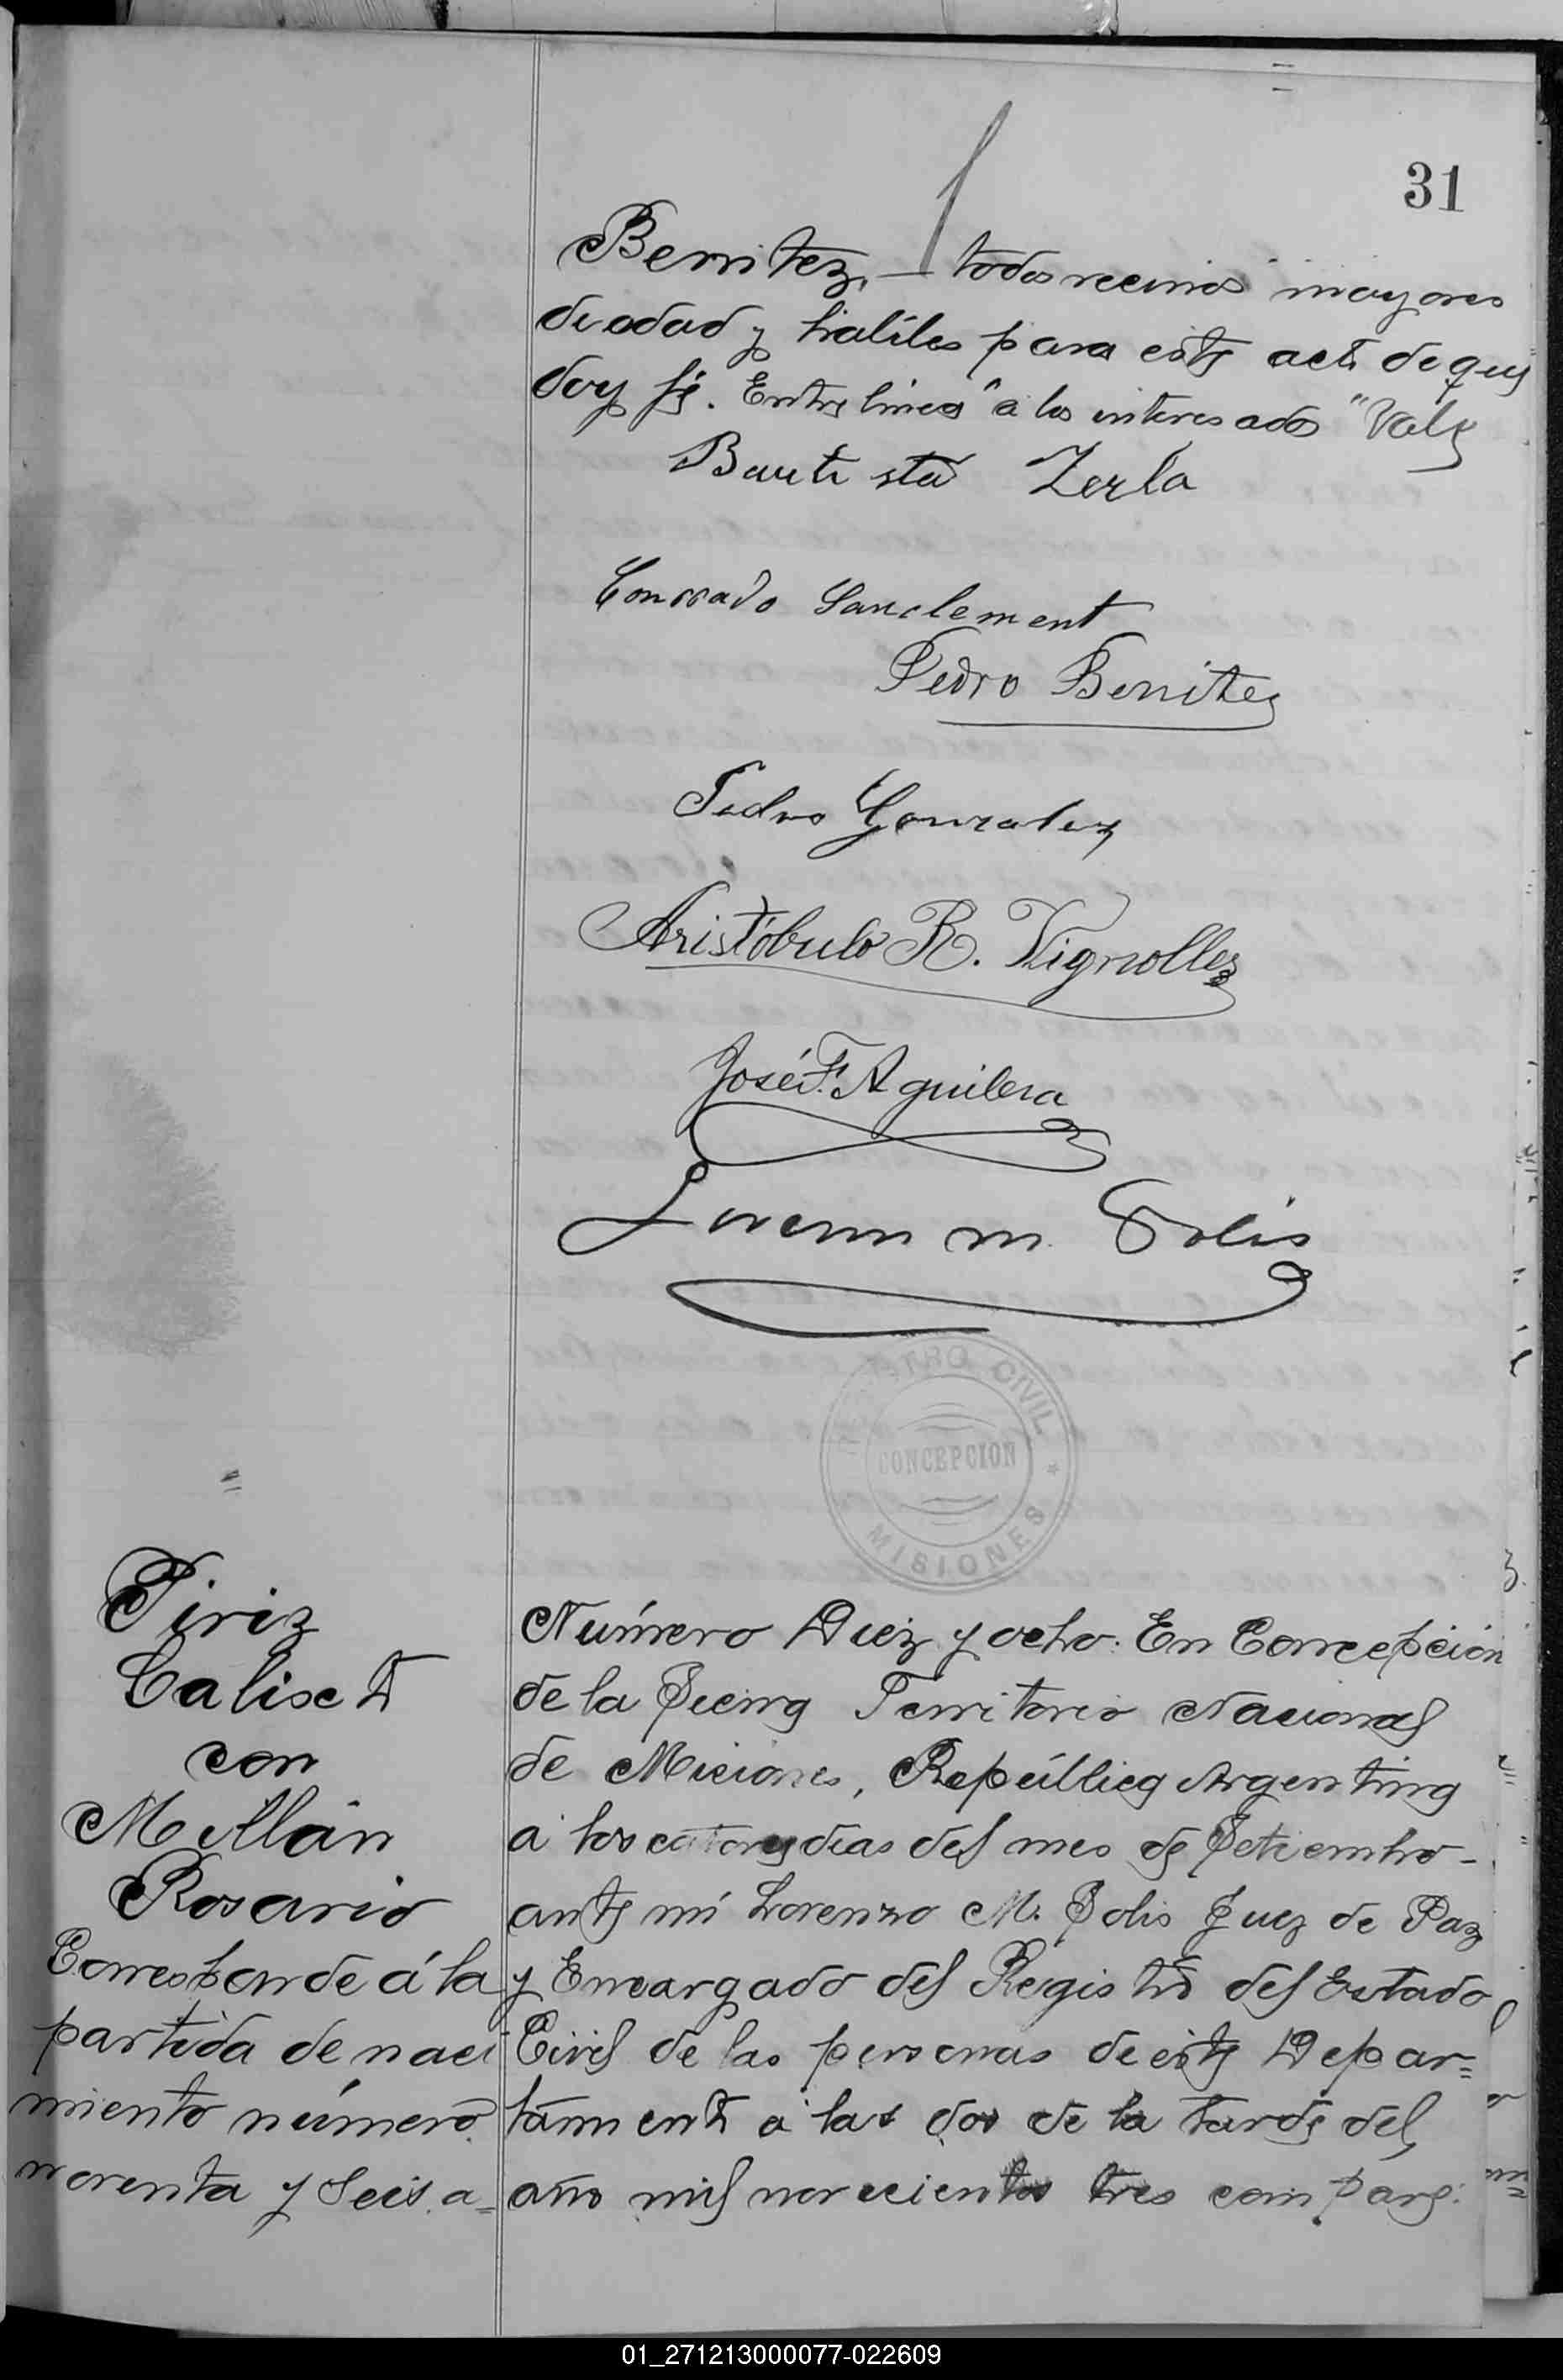 31
Benitez, — todos vecinos mayores
de edad y habiles para este acto de que
doy fé. Entre linea "a los interesados" Vale
Bautista Zerla
Conrrado Sanclement
Pedro Benitez
Pedro Gonzalez
Aristóbulo R. Vignolles
José F. Aguilera
Lorenzo M. Solis
REGISTRO CIVIL
CONCEPCION
MISIONES
Piriz
Calisto
con
Millán
Rosario
Corresponde á la
partida de naci
miento número
noventa y seis a=
Número Diez y ocho. En Concepción
de la Sierra Territorio Nacional
de Misiones, República Argentina
a los catorce dias del mes de Setiembre -
ante mi Lorenzo M. Solis Juez de Paz
y Encargado del Registro del Estado
Civil de las personas de este Depar=
tamento a las dos de la tarde del
año mil novecientos tres compare:
01_271213000077-022609